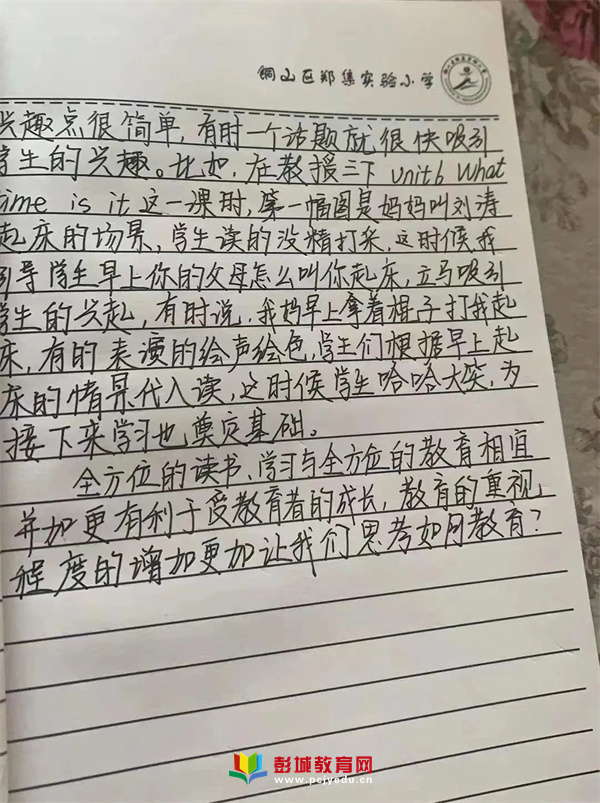 铜山区郑集实验小学
兴趣点很简单,有时一个话题就很快吸引
学生的兴趣。比如,在教授三下 unit6 What
time is it 这一课时,第一幅图是妈妈叫刘涛
起床的场景,学生读的没精打采,这时候我
引导学生早上你的父母怎么叫你起床,立马吸引
学生的兴起,有时说,我妈早上拿着棍子打我起
床,有的表演的绘声绘色,学生们根据早上起
床的情景代入读,这时候学生哈哈大笑,为
接下来学习也奠定基础。
全方位的读书、学习与全方位的教育相宜
并加更有利于受教育者的成长,教育的重视
程度的增加更加让我们思考如何教育?
彭城教育网
www.pcjyedu.cn